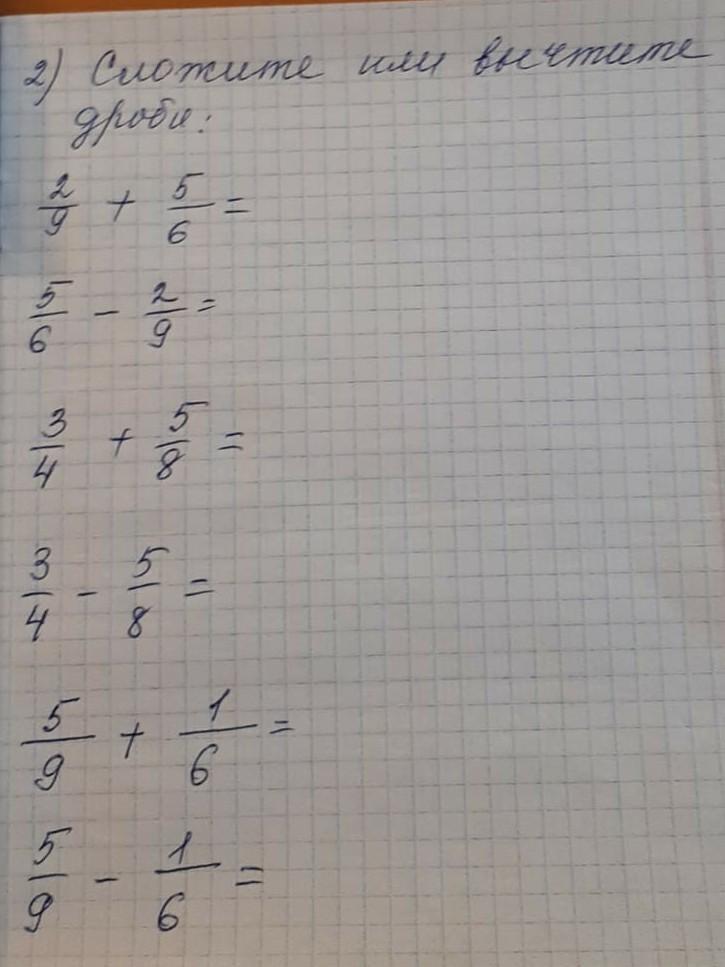 2) Сложите или вычтите
дроби:
2/9 + 5/6 =
5/6 - 2/9 =
3/4 + 5/8 =
3/4 - 5/8 =
5/9 + 1/6 =
5/9 - 1/6 =